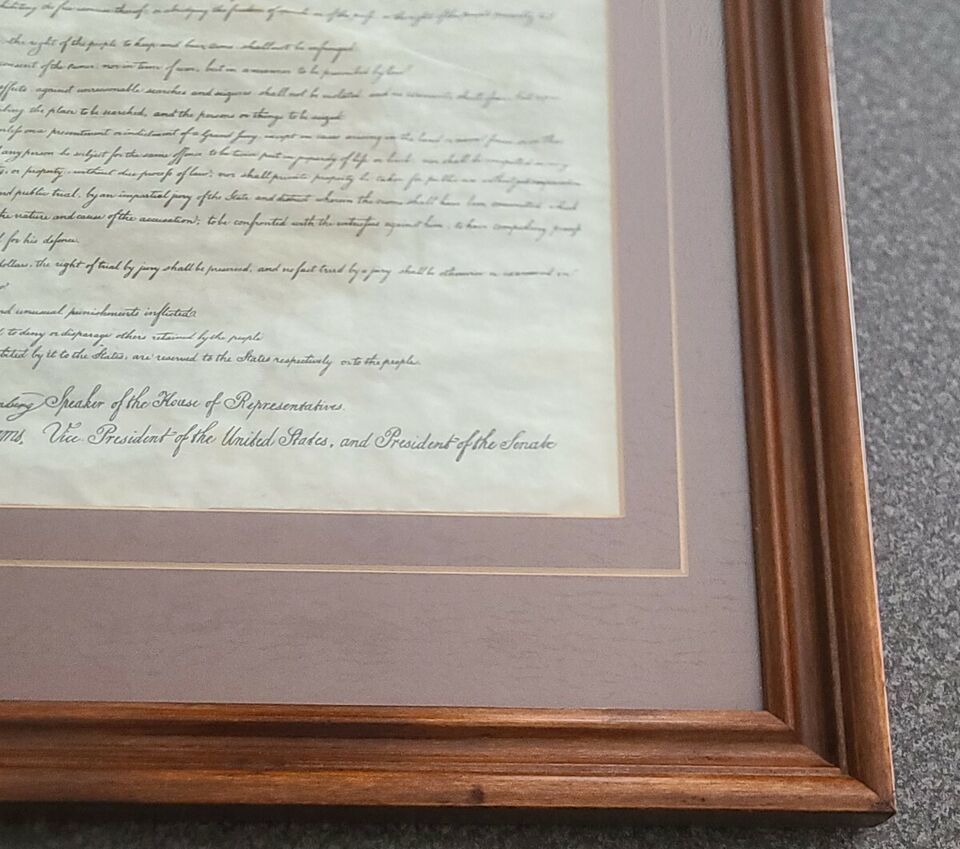 the right of the people to keep and bear arms shall not be infringed
but in a manner to be prescribed by law
against unreasonable searches and seizures shall not be violated and no warrants shall
the place to be searched, and the persons or things to be seized
on a presentment or indictment of a Grand Jury except in cases arising in the land or naval forces
any person be subject for the same offence to be twice put in jeopardy of life or limb nor shall be compelled in any
or property, without due process of law; nor shall private property be taken for public use without just compensation
public trial, by an impartial jury of the State and district wherein the crime shall have been committed which
the nature and cause of the accusation; to be confronted with the witnesses against him; to have compulsory process
for his defence.
dollars, the right of trial by jury shall be preserved, and no fact tried by a jury shall be otherwise re examined in
nd unusual punishments inflicted
to deny or disparage others retained by the people
by it to the States, are reserved to the States respectively or to the people.
Speaker of the House of Representatives.
ams, Vice President of the United States, and President of the Senate